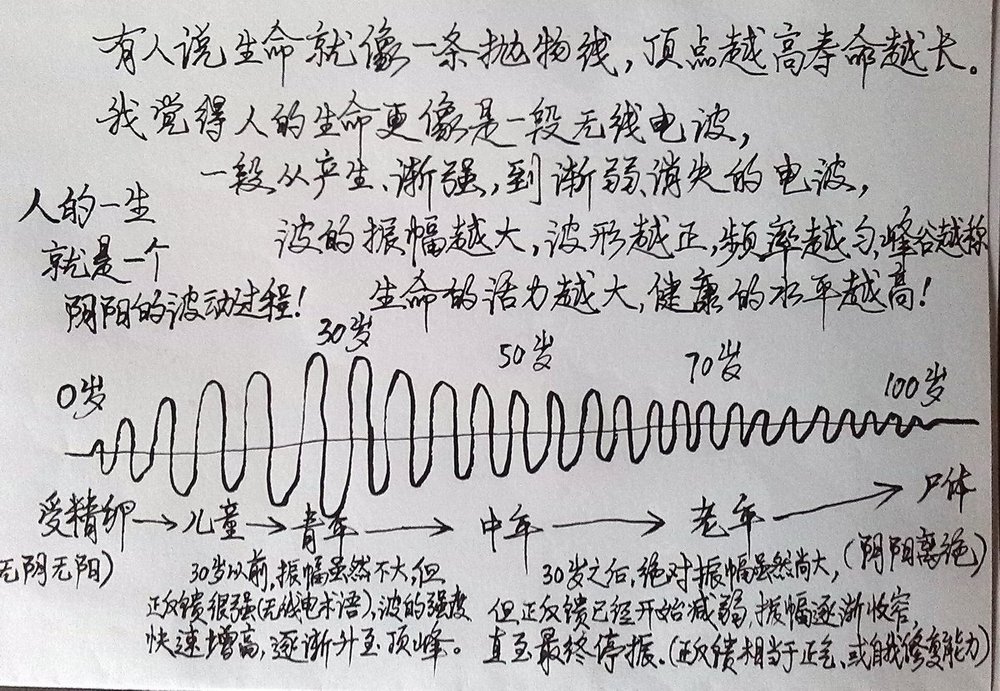 有人说生命就像一条抛物线，顶点越高寿命越长。
我觉得人的生命更像是一段无线电波，
一段从产生、渐强，到渐弱、消失的电波，
波的振幅越大，波形越正，频率越匀，峰谷越稳
生命的活力越大，健康的水平越高！
人的一生
就是一个
阴阳的波动过程！
0岁
30岁
50岁
70岁
100岁
受精卵→儿童→青年→中年→老年→尸体
无阴无阳）
（阴阳离绝）
30岁以前，振幅虽然不大，但
正反馈很强（无线电术语），波的强度
快速增高，逐渐升至顶峰。
30岁之后，绝对振幅虽然尚大，
但正反馈已经开始减弱，振幅逐渐收窄，
直至最终停振.（正反馈相当于正气、或自我修复能力）